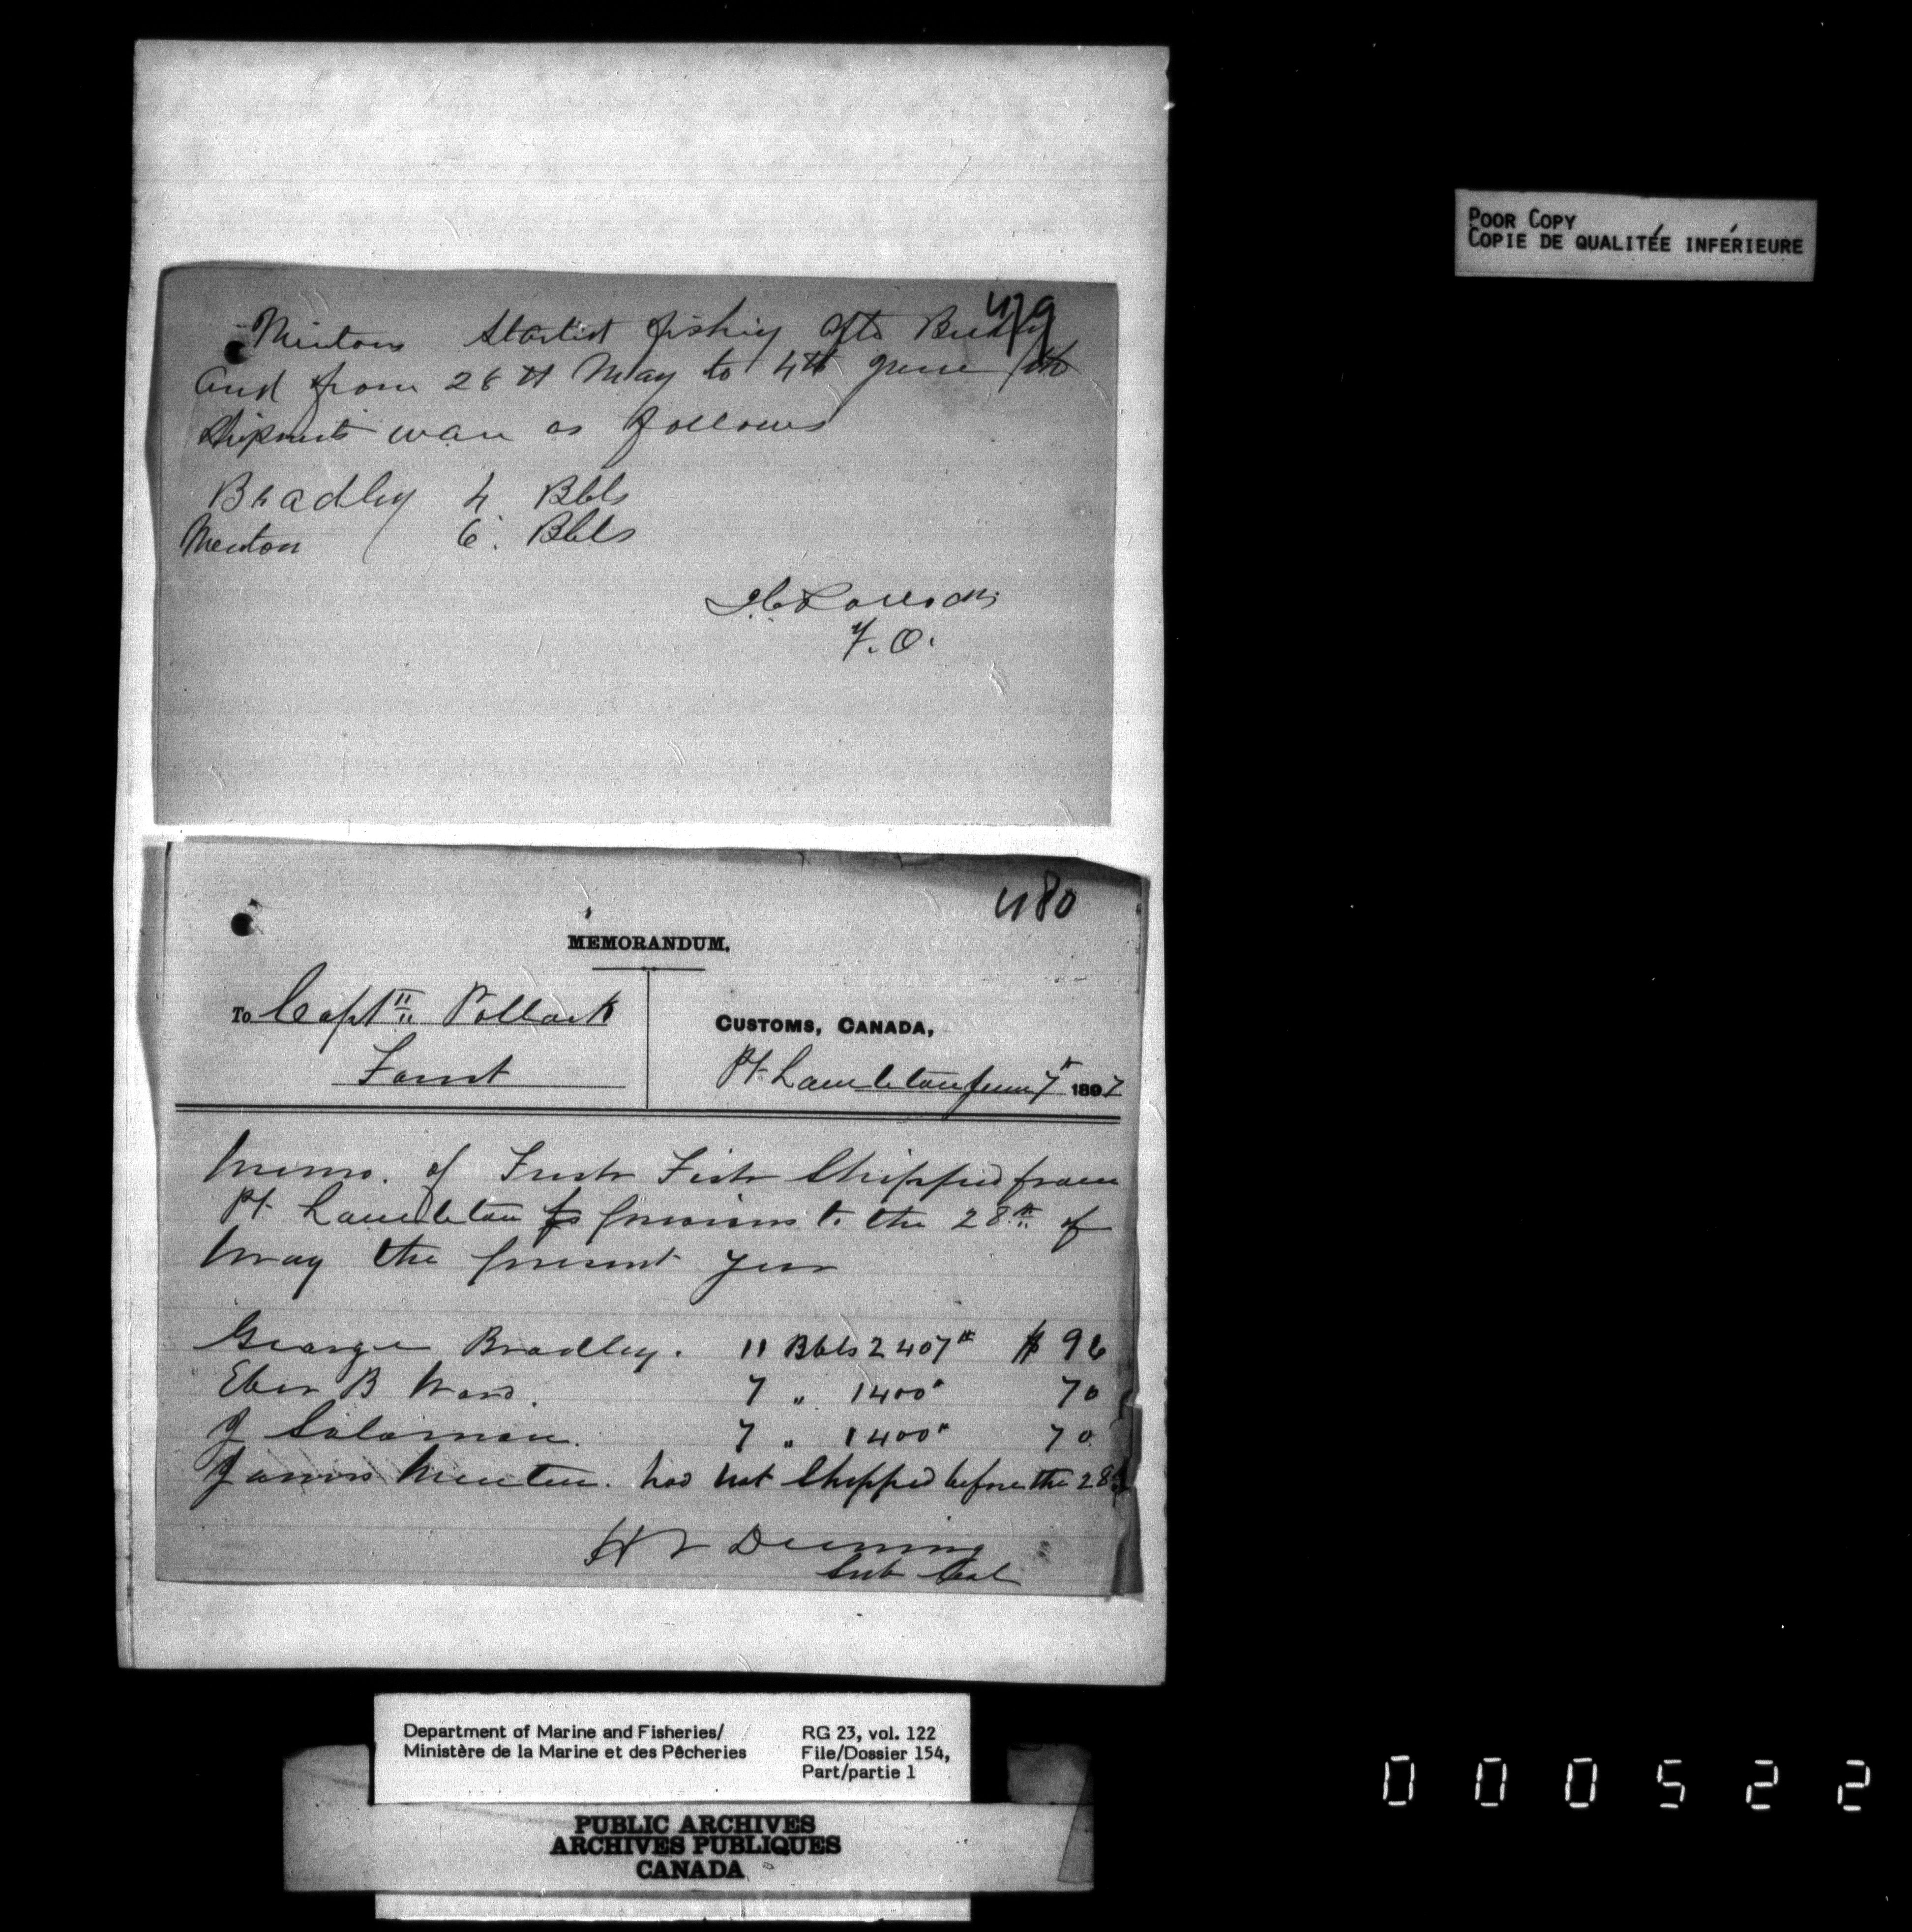 479
Mintons Started fishing after
and from 28th May to 4th June the
Shipments ware as follows
Bradley 4 Bbls
Menton 6. Bbls
F. O.
POOR COPY
COPIE DE QUALITÉE INFÉRIEURE
480
MEMORANDUM.
To Captn Pollock
CUSTOMS, CANADA,
Pt. Lambton June 7th 1897
Memo. of Fresh Fish Shipped from
Pt. Lambton previous to the 28th of
May the present year
George Bradley. 11 Bbls 2407# $ 96
Eber B Ward. 7 " 1400# 70
J Salomon. 7 " 1400# 70
James Menton. had not Shipped before the 28th
Sub Col
Department of Marine and Fisheries/
Ministère de la Marine et des Pêcheries
RG 23, vol. 122
File/Dossier 154,
Part/partie 1
PUBLIC ARCHIVES
ARCHIVES PUBLIQUES
CANADA
000522